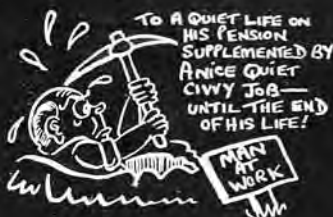 TO A QUIET LIFE ON
HIS PENSION
SUPPLEMENTED BY
A NICE QUIET
CIVVY JOB—
UNTIL THE END
OF HIS LIFE!
MAN
AT
WORK